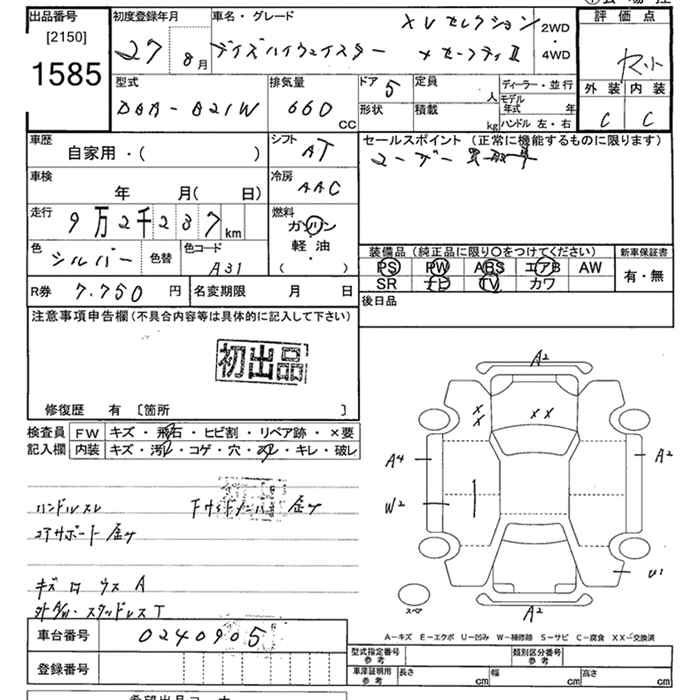 出品番号
[2150]
1585
初度登録年月
27 8月
車名・グレード
XVセレクション
デイズハイウェイスター +セーフティⅡ
2WD
4WD
評価点
外装 内装
C C
型式
DBA-B21W
排気量
660 CC
ドア 5
形状
定員 人
積載 kg
ディーラー・並行
モデル年式 年
ハンドル 左・右
車歴
自家用・( )
シフト
AT
車検
年 月( 日)
冷房
AAC
走行
9万2千237km
燃料
ガソリン
軽油
( ・ )
色
シルバー
色替
色コード
A31
R券 7.750 円
名変期限 月 日
セールスポイント (正常に機能するものに限ります)
ユーザー買取車
装備品 (純正品に限り○をつけてください)
PS PW ABS エアB AW
SR ナビ TV カワ
新車保証書
有・無
後日品
注意事項申告欄(不具合内容等は具体的に記入して下さい)
初出品
修復歴 有 [箇所 ]
検査員 FW キズ・飛石・ヒビ割・リペア跡・×要
記入欄 内装 キズ・汚れ・コゲ・穴・スレ・キレ・破レ
ハンドルスレ
コアサポート金ケ
キズ
A2
X X
X X
A4
A2
W2
U1
スペア
A2
A-キズ E-エクボ U-凹み W-補修跡 S-サビ C-腐食 XX-交換済
車台番号 0240905
登録番号
型式指定番号 参考
類別区分番号 参考
車庫証明用 参考 長さ cm 幅 cm 高さ cm
希望出品コーナー